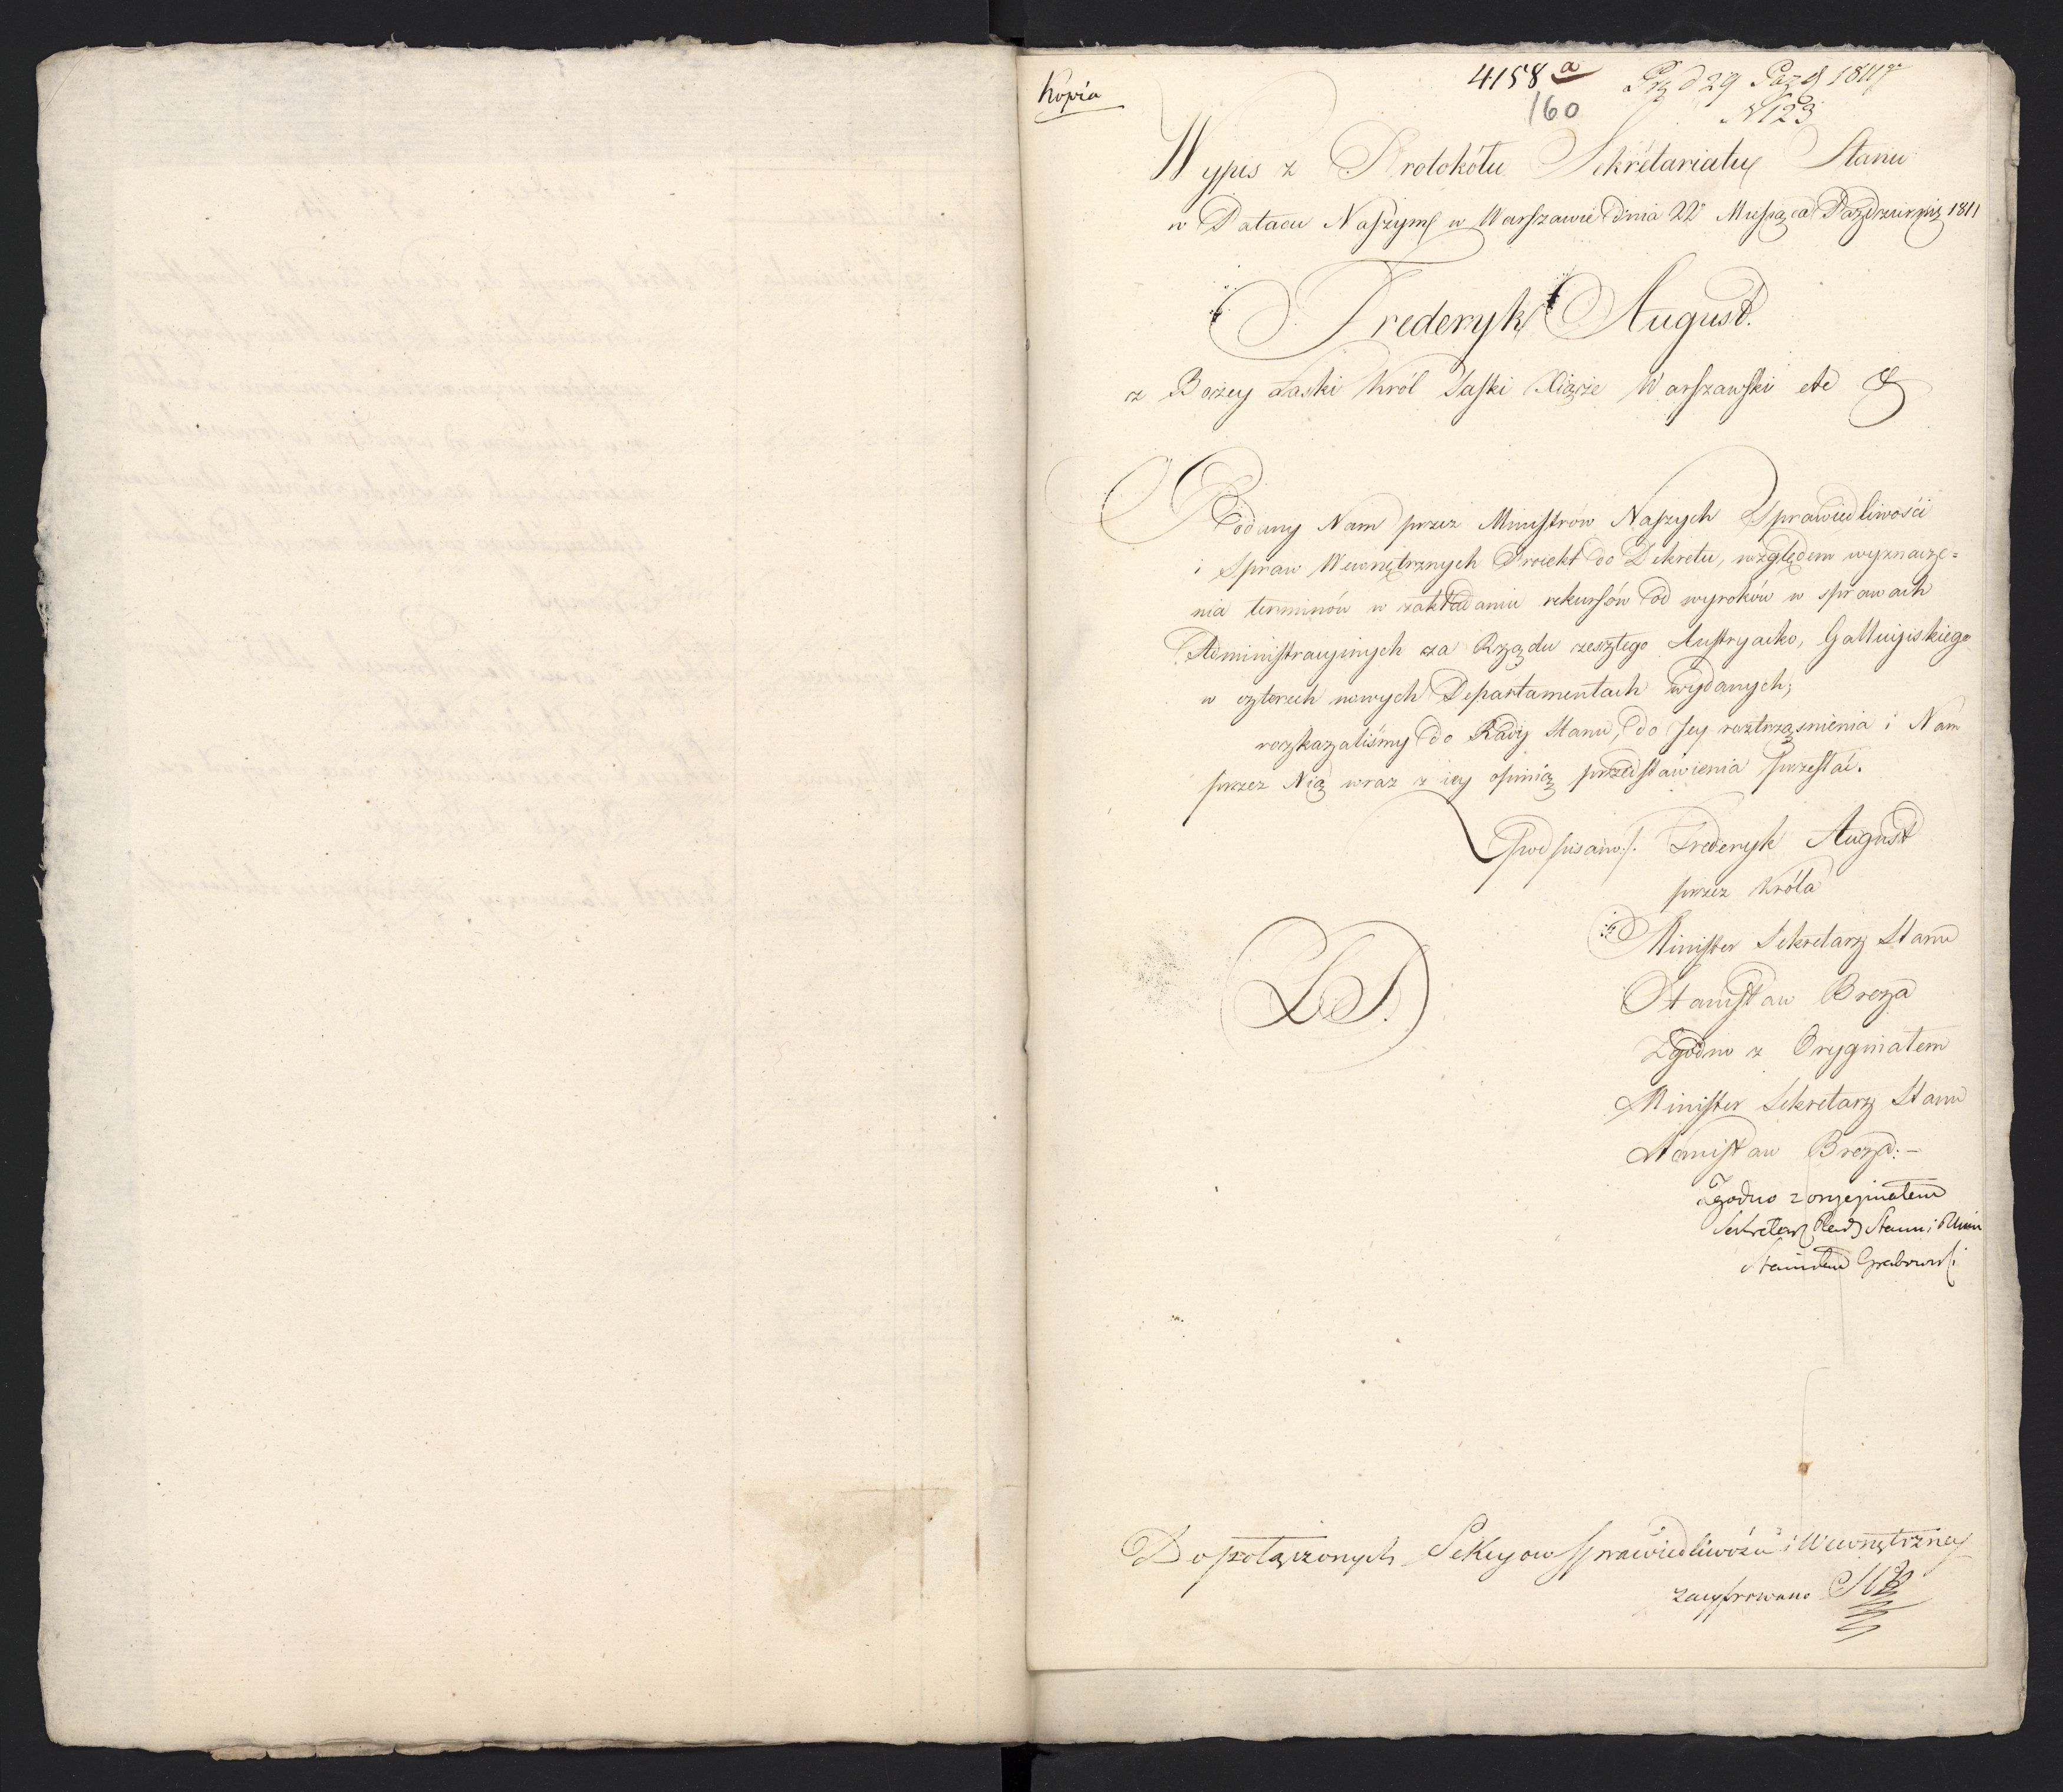 Kopia
4158 a
160
Prz d 29 Paźd 1811
N 123
Wypis z Protokółu Sekretariatu Stanu
w Pałacu Naszym w Warszawie dnia 22 Miesiąca Października 1811
Frederyk August.
z Bożey Łaski Król Saski Xiąże Warszawski etc &
Podany Nam przez Ministrów Naszych Sprawiedliwości
i Spraw Wewnętrznych Proiekt do Dekretu, względem wyznacze=
nia terminów w zakładaniu rekursów od wyroków w sprawach
Administracyinych za Rządu zeszłego Austryacko, Gallicyiskiego
w czterech nowych Departamentach wydanych;
rozkazaliśmy do Rady Stanu, do Jey roztrząśnienia i Nam
przez Nią wraz z iey opinią przedstawienia przesłać.
(podpisano:/. Frederyk August
przez Króla
Minister Sekretarz Stanu
Stanisław Breza
Zgodno z Oryginałem
Minister Sekretarz Stanu
Stanisław Breza:-
LS.
Zgodno z oryginałem
Sekretarz Rady Stanu i Minis
Stanisław Grabowski
Do połączonych Sekcyow Sprawiedliwości i Wewnętrzney
zacyfrowano